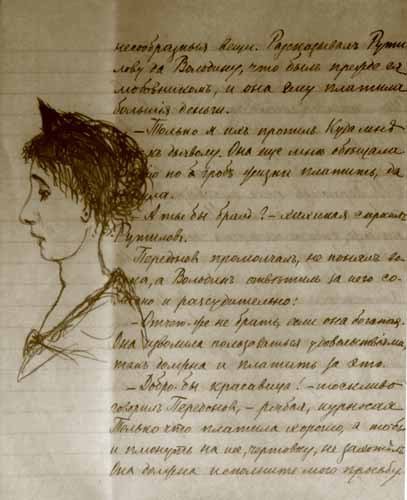 несообразныя вещи. Разсказывалъ Рути
лову да Володину, что былъ прежде ея
любовникомъ, и она ему платила
большія деньги.
— Только я ихъ пропилъ. Куда мнѣ
къ дьяволу. Она еще мнѣ обѣщала
по гробъ жизни платить, да
ула.
— А ты бы бралъ? — хихикая спросилъ
Рутиловъ.
Передоновъ промолчалъ, не понялъ во
а, а Володинъ отвѣтилъ за него со
но и разсудительно:
— Отчего-же не брать, если она богатая.
Она изволила пользоваться удовольствіями,
такъ должна и платить за это.
— Добро-бы красавица! — тоскливо
говорилъ Передоновъ, — рябая, курносая
Только что платила хорошо, а то бы
и плюнуть на нее, чертовку, не захотѣлъ.
Она должна исполнить мою просьбу